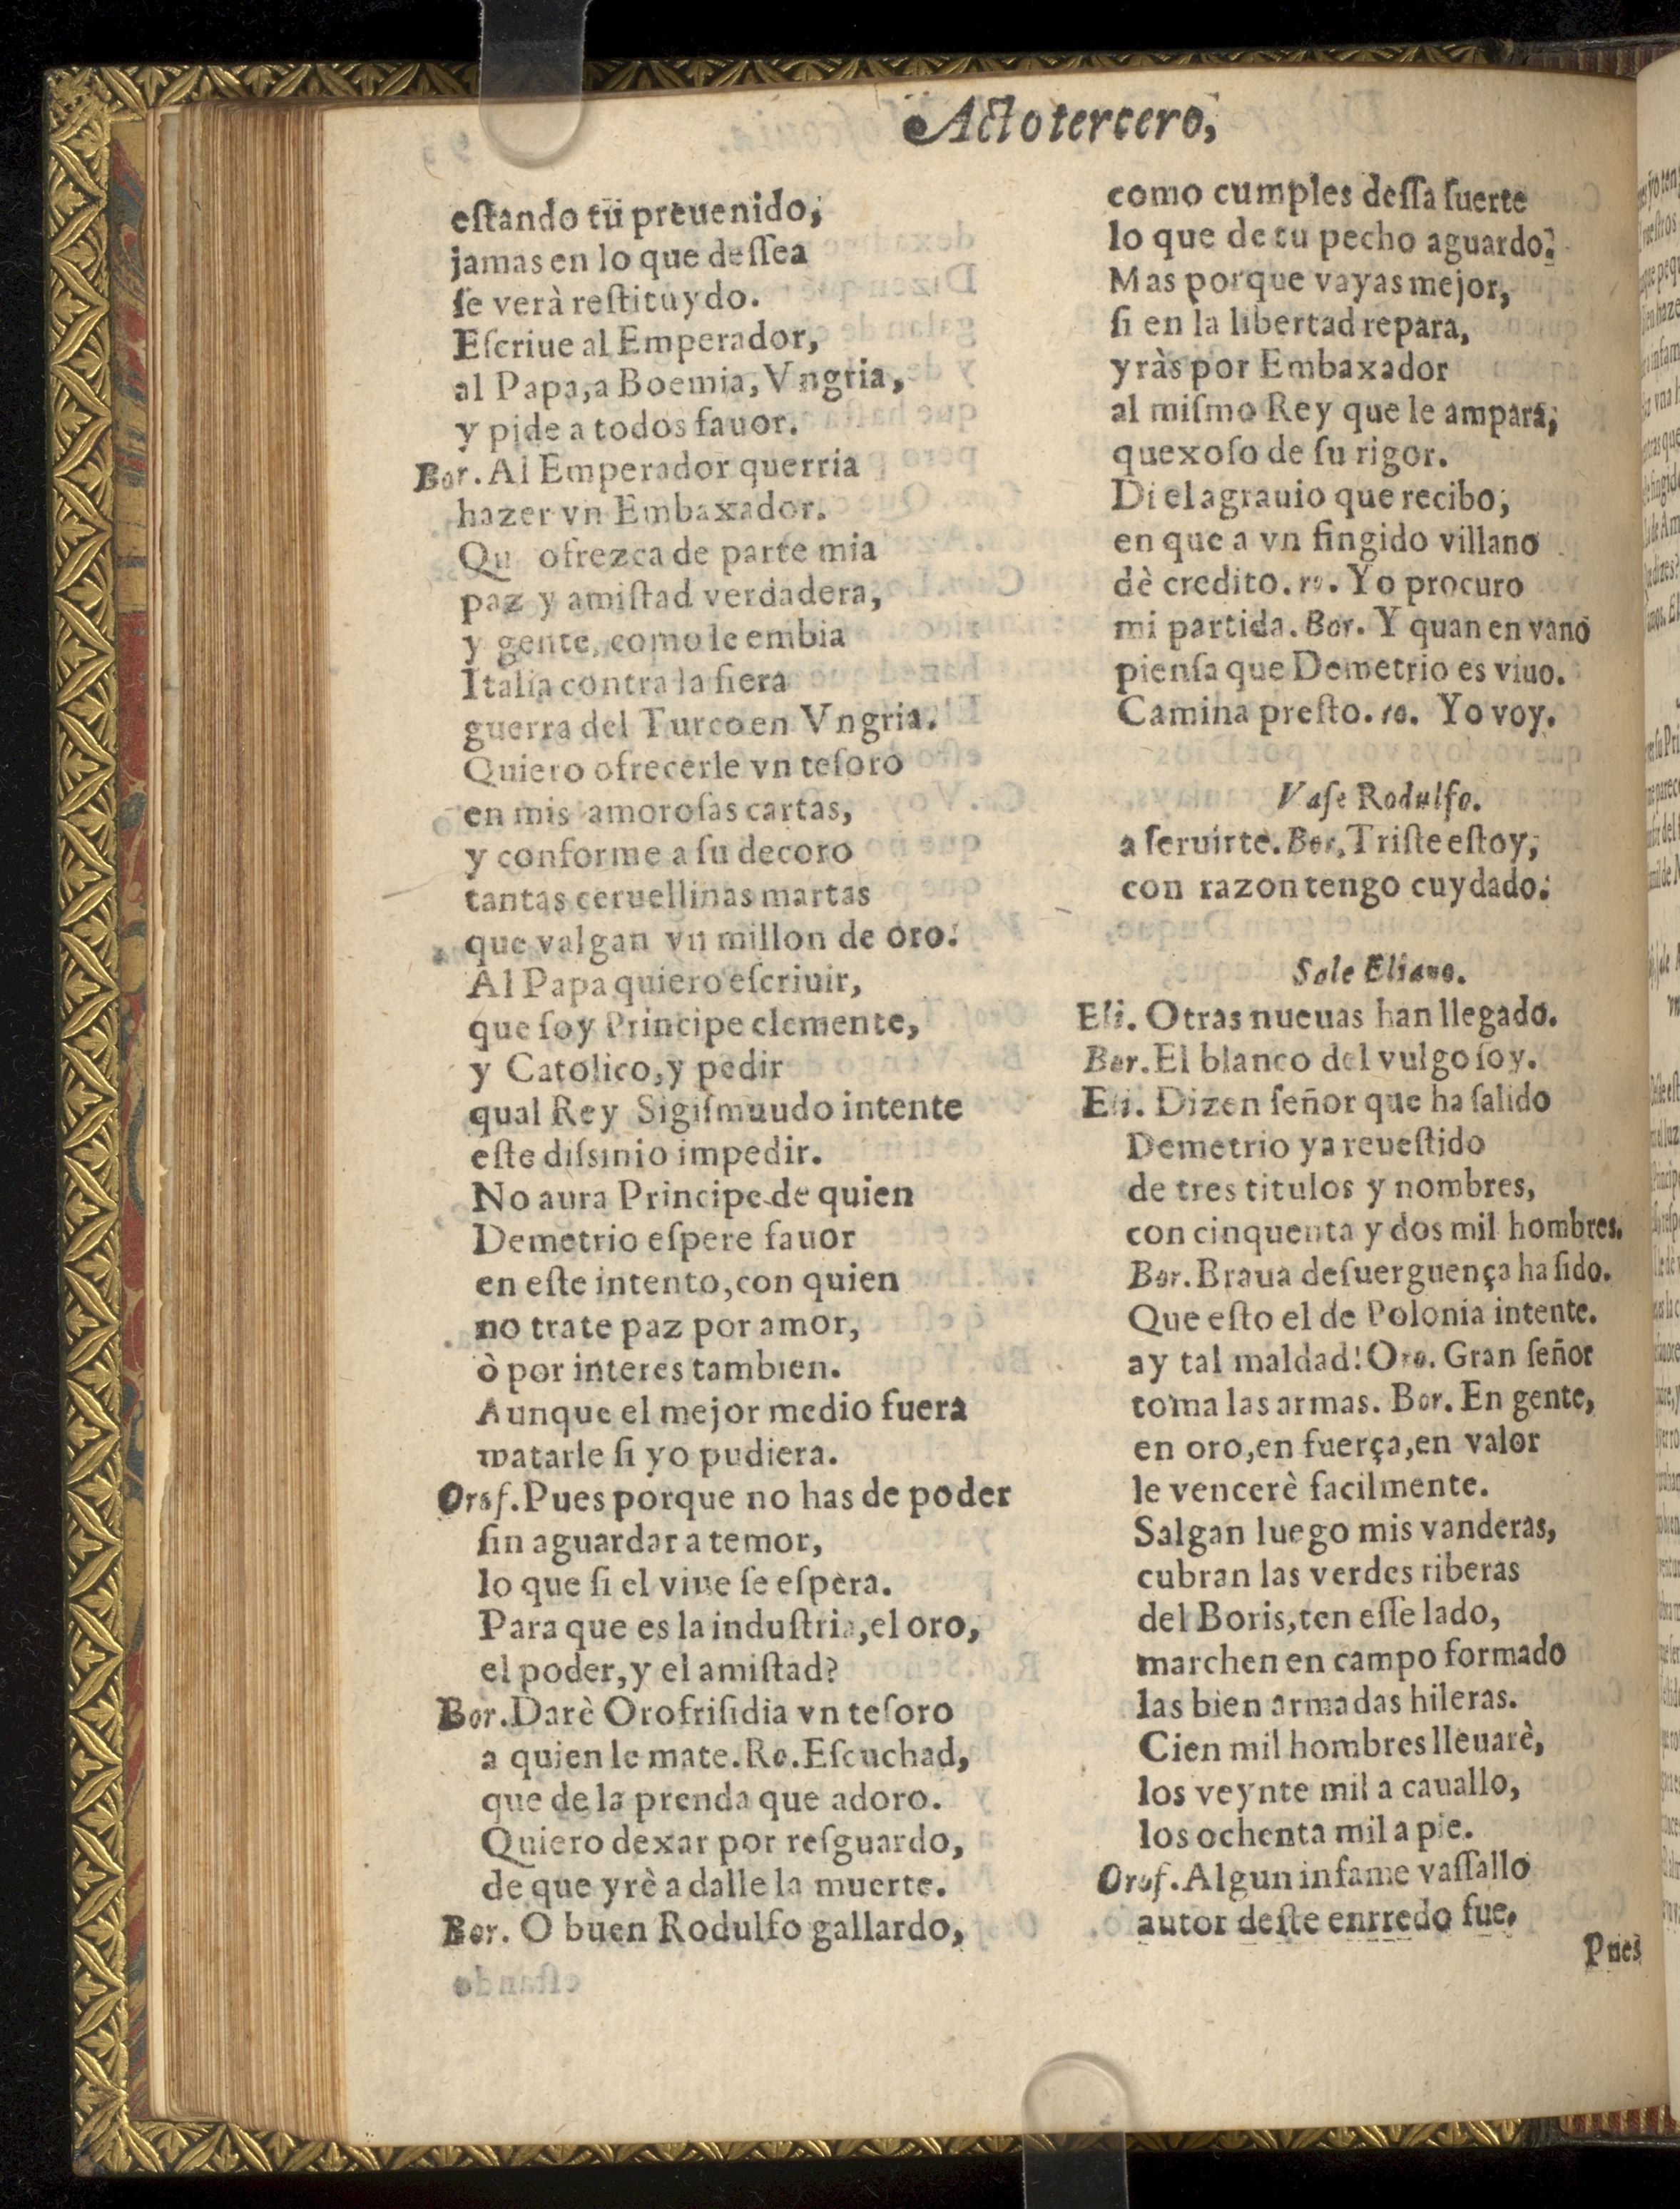 Acto tercero,
estando tu preuenido,
jamas en lo que dessea
se verà restituydo.
Escriue al Emperador,
al Papa, a Boemia, Vngria,
y pide a todos fauor.
Bor. Al Emperador querria
hazer vn Embaxador.
Qu ofrezca de parte mia
paz y amistad verdadera,
y gente, como le embia
Italia contra la fiera
guerra del Turco en Vngria.
Quiero ofrecerle vn tesoro
en mis amorosas cartas,
y conforme a su decoro
tantas ceruellinas martas
que valgan vn millon de oro.
Al Papa quiero escriuir,
que soy Principe clemente,
y Catolico, y pedir
qual Rey Sigismuudo intente
este dissinio impedir.
No aura Principe de quien
Demetrio espere fauor
en este intento, con quien
no trate paz por amor,
ò por interes tambien.
Aunque el mejor medio fuera
matarle si yo pudiera.
Orof. Pues porque no has de poder
sin aguardar a temor,
lo que si el viue se espera.
Para que es la industria, el oro,
el poder, y el amistad?
Bor. Darè Orofrisidia vn tesoro
a quien le mate. Ro. Escuchad,
que de la prenda que adoro.
Quiero dexar por resguardo,
de que yrè a dalle la muerte.
Bor. O buen Rodulfo gallardo,
como cumples dessa suerte
lo que de tu pecho aguardo?
Mas porque vayas mejor,
si en la libertad repara,
yràs por Embaxador
al mismo Rey que le ampara,
quexoso de su rigor.
Di el agrauio que recibo,
en que a vn fingido villano
dè credito. ro. Yo procuro
mi partida. Bor. Y quan en vano
piensa que Demetrio es viuo.
Camina presto. ro. Yo voy.
Vase Rodulfo.
a seruirte. Bor. Triste estoy,
con razon tengo cuydado.
Sale Eliano.
Eli. Otras nueuas han llegado.
Bor. El blanco del vulgo soy.
Eli. Dizen señor que ha salido
Demetrio ya reuestido
de tres titulos y nombres,
con cinquenta y dos mil hombres.
Bor. Braua desuerguença ha sido.
Que esto el de Polonia intente.
ay tal maldad! Oro. Gran señor
toma las armas. Bor. En gente,
en oro, en fuerça, en valor
le vencerè facilmente.
Salgan luego mis vanderas,
cubran las verdes riberas
del Boris, ten esse lado,
marchen en campo formado
las bien armadas hileras.
Cien mil hombres lleuarè,
los veynte mil a cauallo,
los ochenta mil a pie.
Orof. Algun infame vassallo
autor deste enrredo fue.
Pues